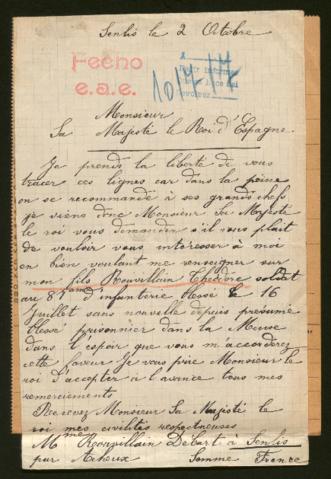 Senlis le 2 Octobre
Fecho
e.a.e.
1017.17
Monsieur
Sa Majesté le Roi d'Espagne.
Je prends la liberté de vous
tracer ces lignes car dans la peine
on se recommande à ses grands chefs
je viens donc Monsieur Sa Majesté
le roi vous demander s'il vous plait
de vouloir vous intéresser à moi
en bien voulant me renseigner sur
mon fils Rouvillain Théodore soldat
au 87 d'infanterie blessé le 16
Juillet sans nouvelle depuis présumé
blessé prisonnier dans la Meuse
dans l'espoir que vous m'accorderez
cette faveur Je vous prie Monsieur le
roi d'accepter à l'avance tous mes
remerciements
Recevez Monsieur Sa Majesté le
roi mes civilités respectueuses
Mme Rouvillain Debart à Senlis
par Acheux Somme France